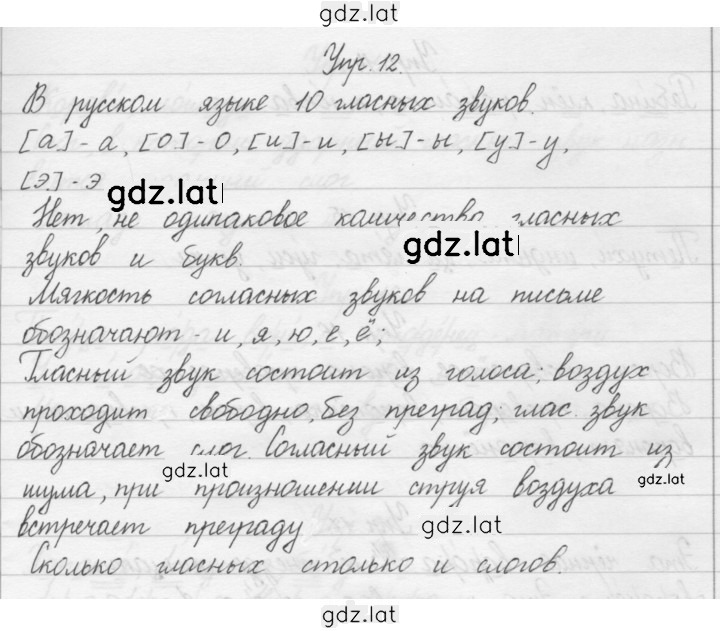 gdz.lat
Упр. 12.
В русском языке 10 гласных звуков.
[а]-а, [о]-о, [и]-и, [ы]-ы, [у]-у,
[э]-э
gdz.lat
Нет, не одинаковое количество гласных
gdz.lat
звуков и букв.
Мягкость согласных звуков на письме
обозначают - и, я, ю, е, ё;
Гласный звук состоит из голоса; воздух
проходит свободно, без преград, глас. звук
обозначает слог. Согласный звук состоит из
gdz.lat
gdz.lat
шума, при произношении струя воздуха
встречает преграду
gdz.lat
Сколько гласных столько и слогов.
gdz.lat